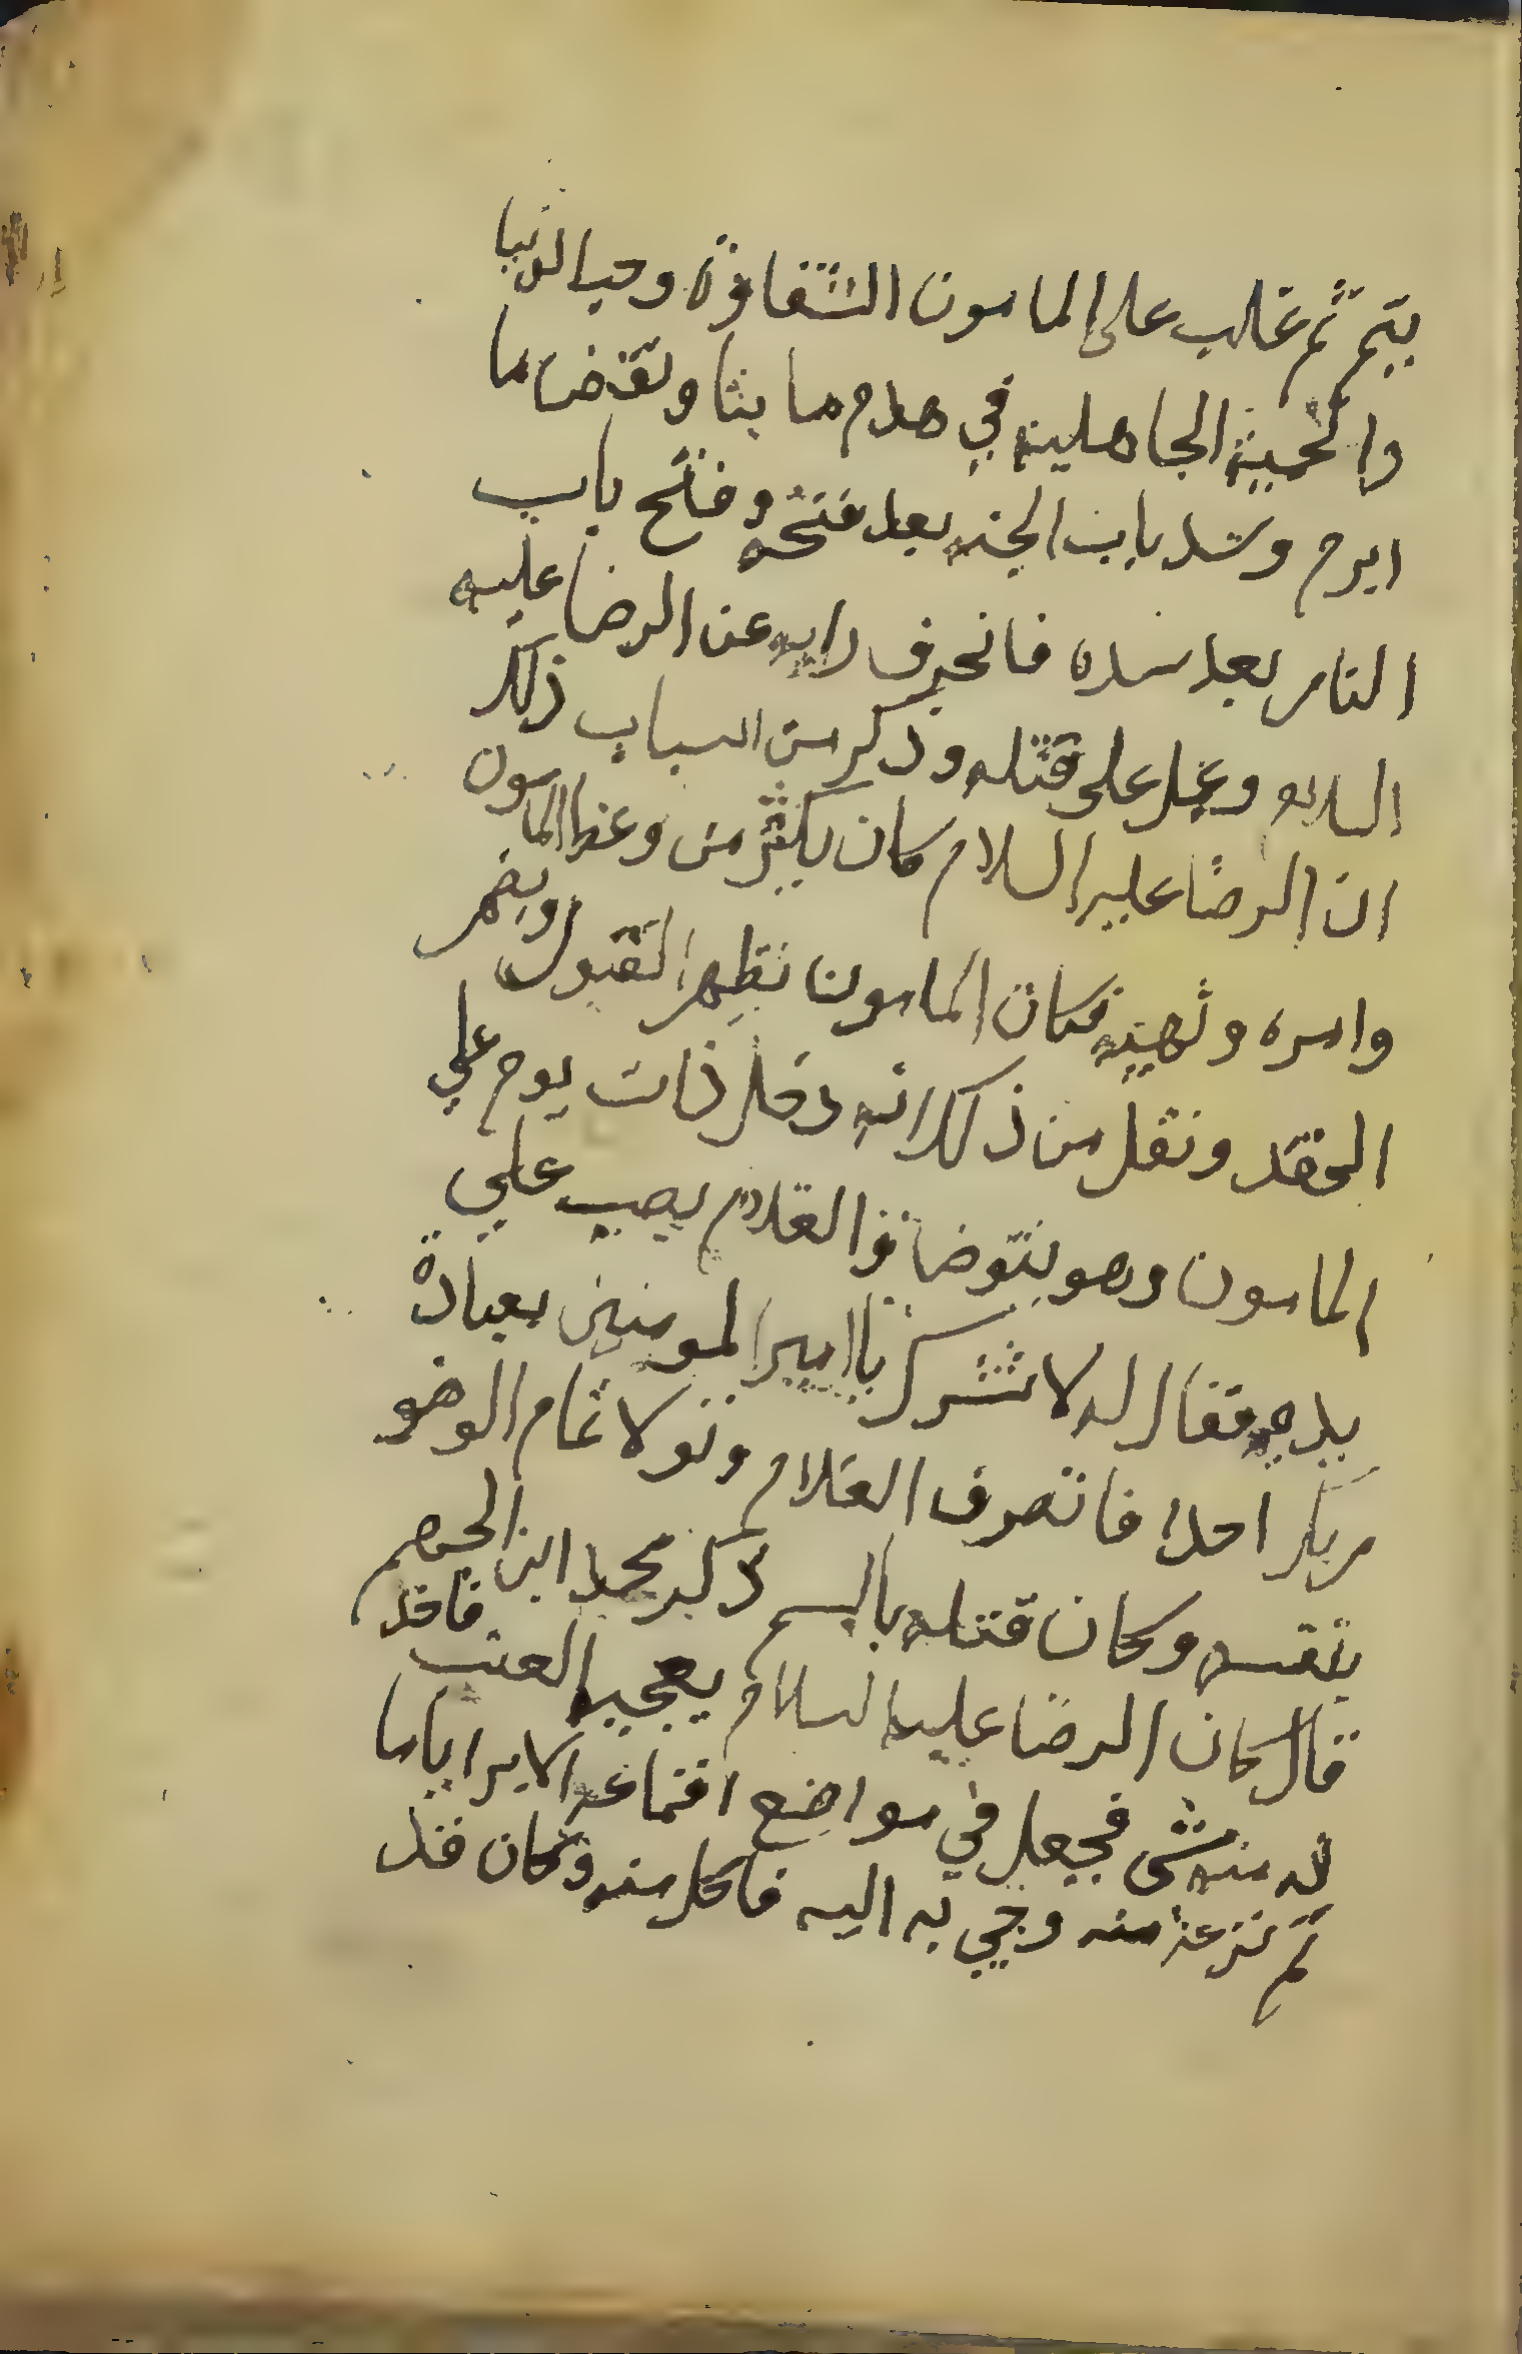 يتم ثم غلب على المامون الشقاوة وحب الدنيا
والحمية الجاهلية في هدم ما بنا ونقض ما
ابرم وسد باب الجنه بعد فتحه وفتح باب
النار بعد سده فانحرف رايه عن الرضا عليه
السلام وعمل على قتله وذكر من اسباب ذلك
ان الرضا عليه السلام كان يكثر من وعظ المامون
وامره ونهيه فكان المامون يظهر القبول ويضمر
الحقد ونقل من ذلك انه دخل ذات يوم علي
المامون وهو يتوضا والغلام يصب علي
يديه فقال له لا تشرك يا امير المومنين بعبادة
ربك احدا فانصرف الغلام وتولا تمام الوضو
بنفسه وكان قتله بالسم ذكر محمد ابن الجهم
قال كان الرضا عليه السلام يعجبه العنب فاخذ
له منه شى فجعل في مواضع اقماعه الابر اياما
ثم نزعة منه وجي به اليه فاكل منه وكان فند